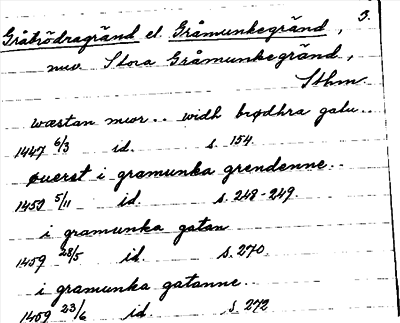 Gråbrödragränd el. Gråmunkegränd, 3.
nuv. Stora Gråmunkegränd,
Sthm.
wæstan mwr.. widh brødhra gatu..
1447 6/3 id. s. 154.
øuerst i gramunka grendenne..
1459 5/11 id. s. 248-249.
i gramunka gatan
1459 28/5 id. s. 270.
i gramunka gatanne..
1459 23/6 id. s. 272